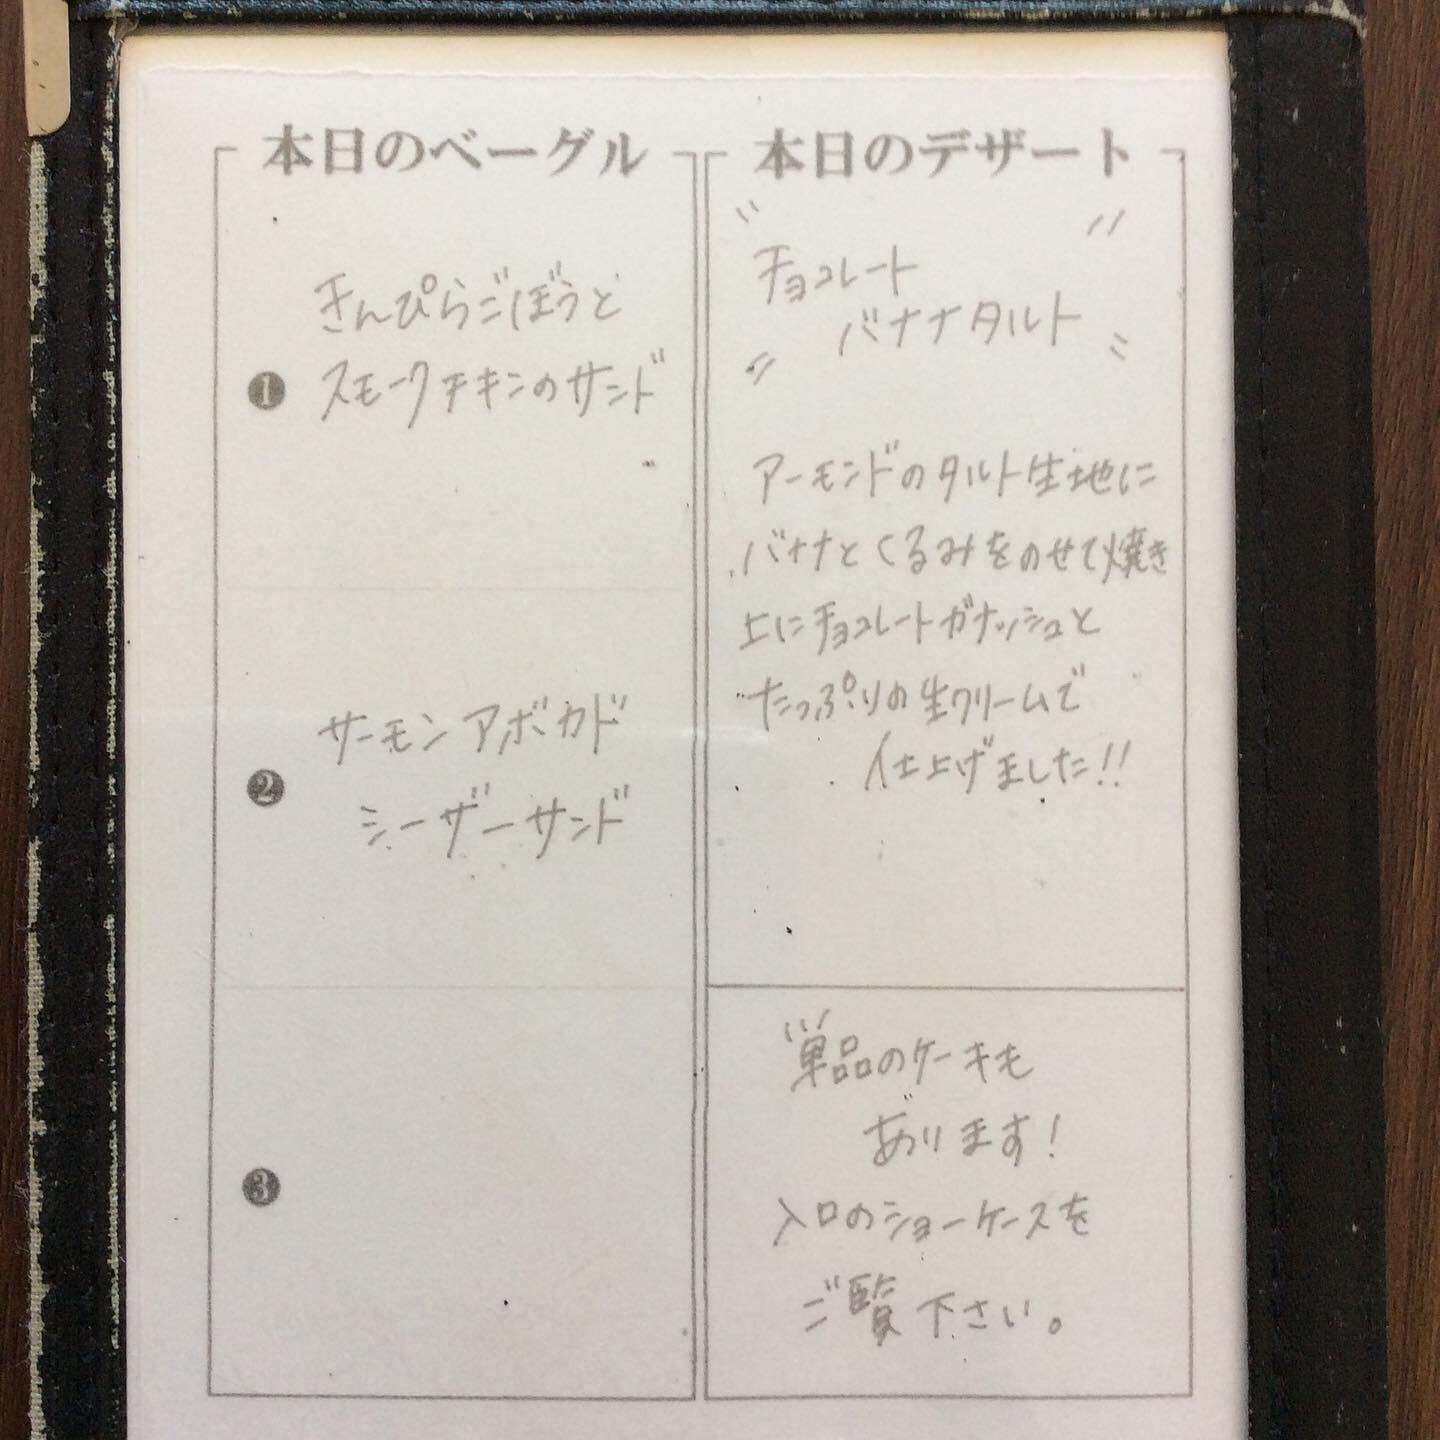 本日のベーグル
きんぴらごぼうと
❶ スモークチキンのサンド
サーモンアボカド
❷ シーザーサンド
❸
本日のデザート
チョコレート
バナナタルト
アーモンドのタルト生地に
バナナとくるみをのせて焼き
上にチョコレートガナッシュと
たっぷりの生クリームで
仕上げました!!
単品のケーキも
あります!
入口のショーケースを
ご覧下さい。